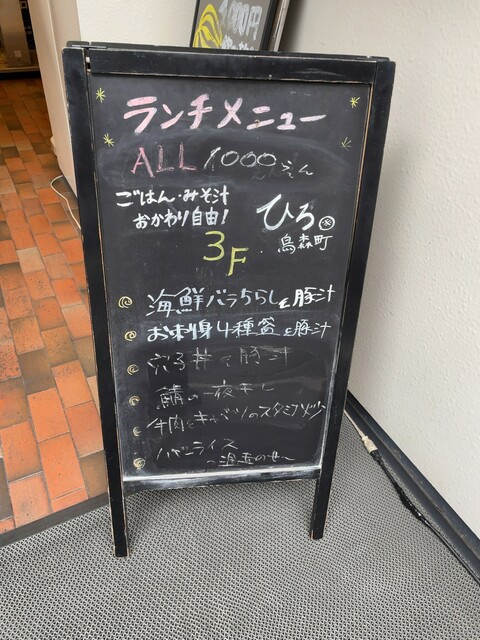 1000円
ランチメニュー
ALL 1000えん
ごはん・みそ汁
おかわり自由!
ひろ
烏森町
3F
海鮮バラちらしと豚汁
お刺身4種盛と豚汁
穴子丼と豚汁
鯖の一夜干し
牛肉とキャベツのスタミナ炒め
ハヤシライス
～温玉のせ～